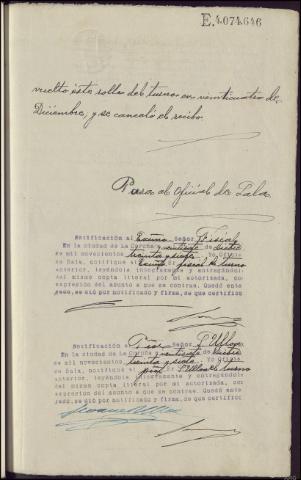 E.4074646
vuelto este rollo del turno en veinticuatro de
Diciembre, y se canceló el recibo.
Pasa al Oficial de Sala
Notificación al Excmo. Señor Fiscal
En la ciudad de La Coruña a veintisiete de Dicbre
de mil novecientos treinta y Yo Oficial
de Sala, notifiqué al Señor Fiscal el auto
anterior, leyéndole íntegramente y entregándole
del mismo copia literal por mi autorizada, con
expresión del asunto a que se contrae. Quedó ente-
rado, se dió por notificado y firma, de que certifico
Notificación al Señor Ulloa
En la ciudad de La Coruña a veintisiete de Dicbre
de mil novecientos treinta y Yo Oficial
de Sala, notifiqué al Ulloa el auto
anterior, leyéndole íntegramente y entregándole
del mismo copia literal por mi autorizada, con
expresión del asunto a que se contrae. Quedó ente-
rado, se dió por notificado y firma, de que certifico